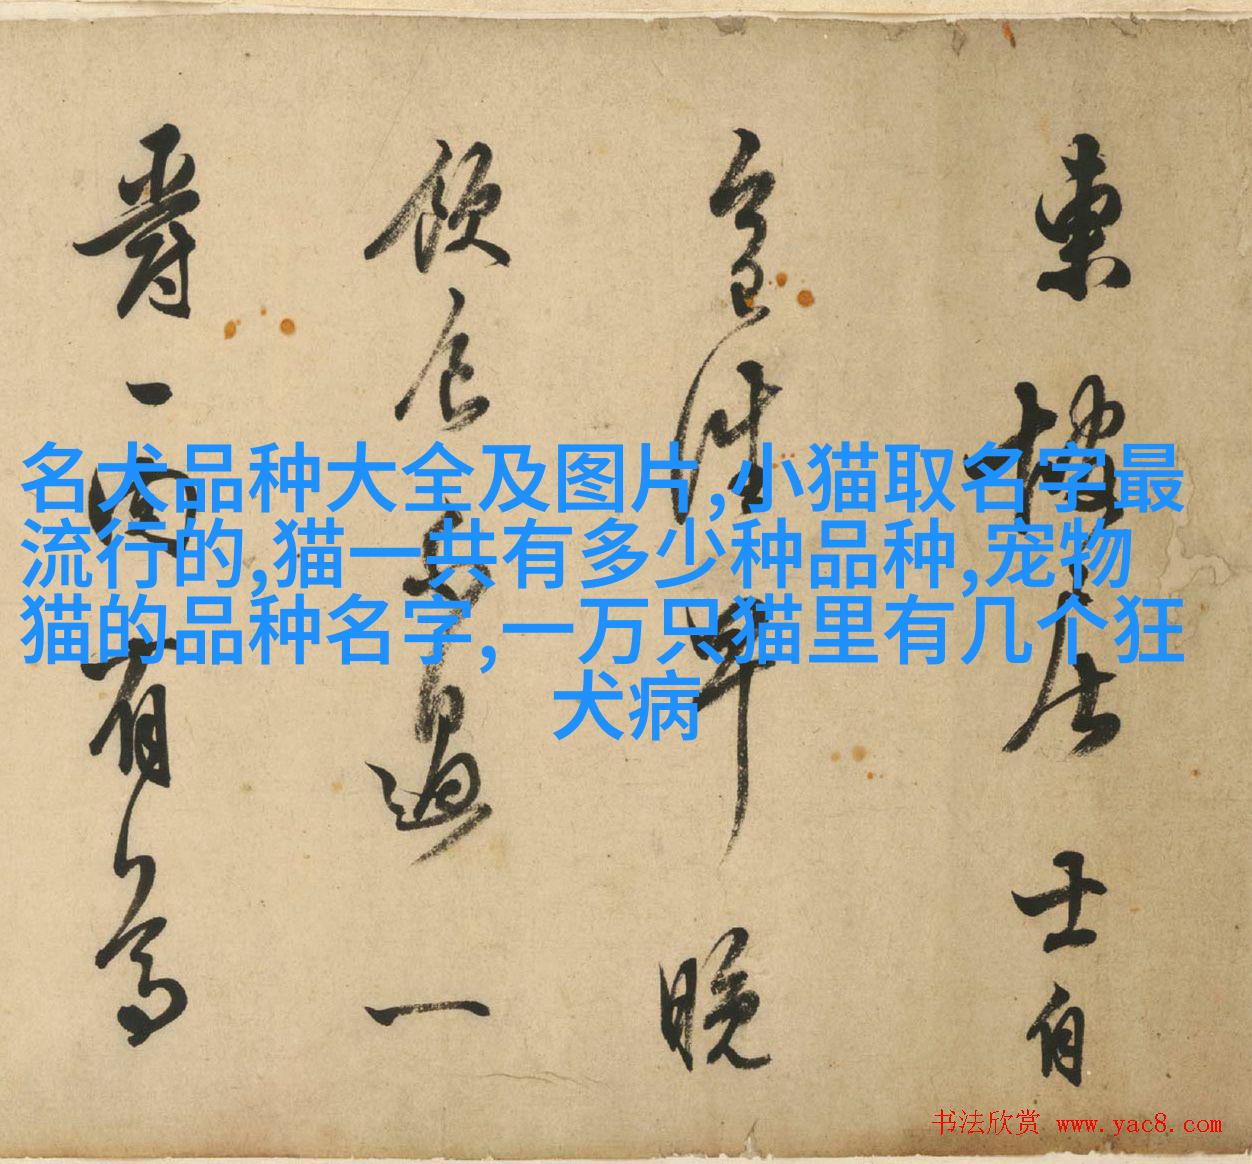 東坡居士自
今日以往早晚
飲食不過一
爵一肉有尊
名犬品种大全及图片,小猫取名字最
流行的,猫一共有多少种品种,宠物
猫的品种名字,一万只猫里有几个狂
犬病
书法欣赏 www.yac8.com